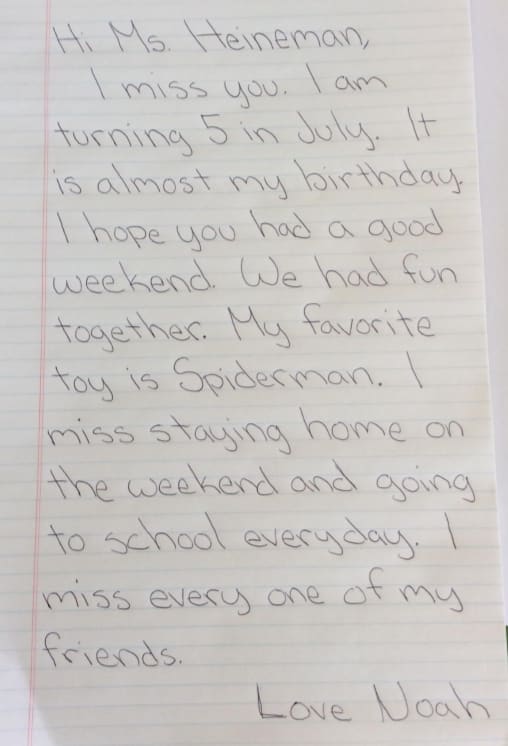 Hi Ms. Heineman,
I miss you. I am
turning 5 in July. It
is almost my birthday.
I hope you had a good
weekend. We had fun
together. My favorite
toy is Spiderman. I
miss staying home on
the weekend and going
to school everyday. I
miss every one of my
friends.
Love Noah